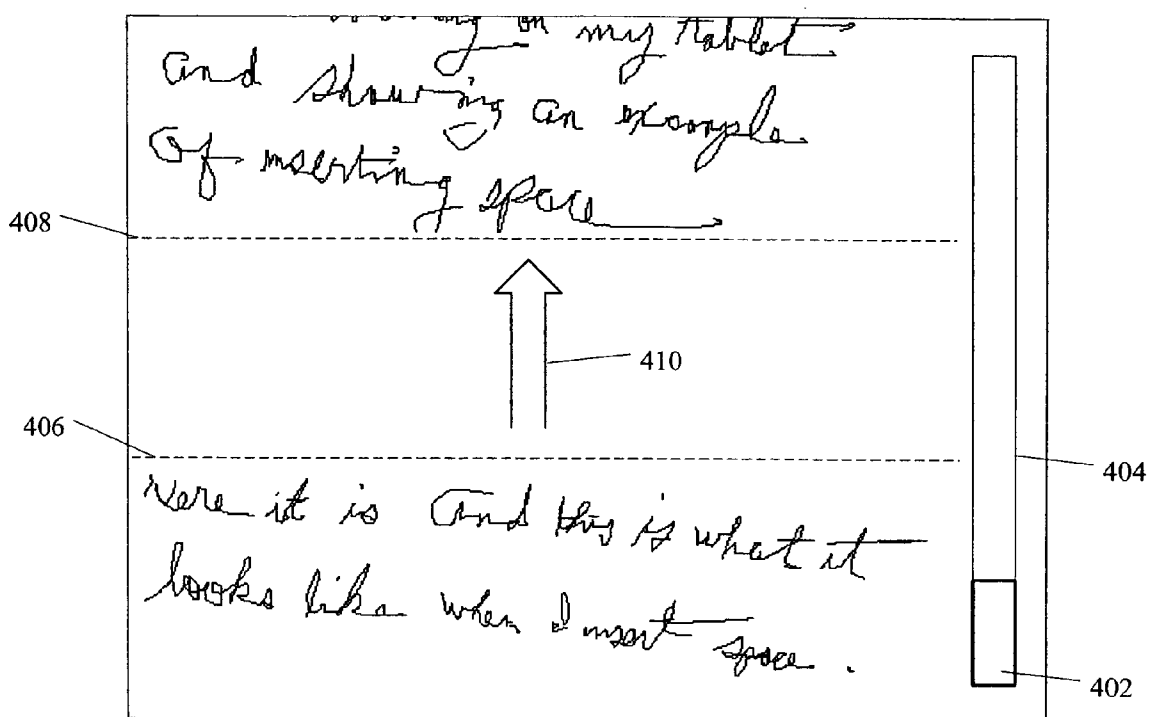 on my tablet
and showing an example
of inserting space
408
410
406
404
Here it is and this is what it
looks like when I insert space.
402